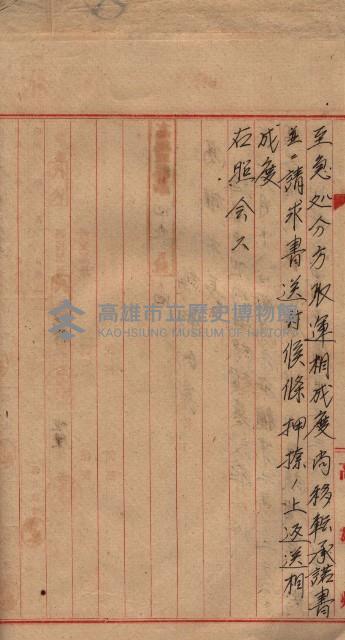 至急処分方取運相成度尚移転承諾書
並ニ請求書送付候條押捺ノ上返送相
成度
右照会ス
高雄市立歷史博物館
KAOHSIUNG MUSEUM OF HISTORY
高雄州